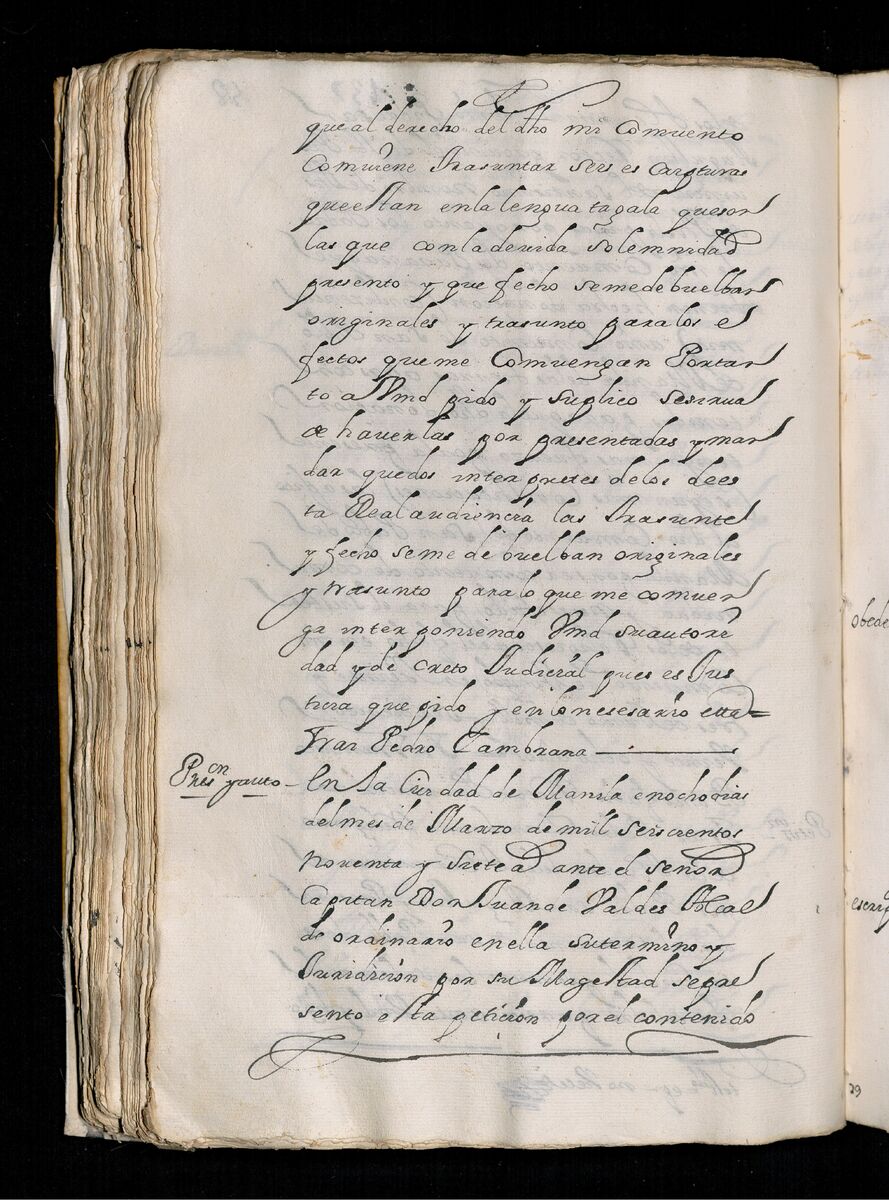 que al derecho del dho mi Comuento
Comuiene trasuntar seis escripturas
que estan en la lengua tagala que son
las que con la deuida solemnidad
presento y que fecho se me debuelban
originales y trasunto para los e
fectos que me Comuengan Portan
to a Vmd pido y suplico se sirua
de hauerlas por presentadas y man
dar que dos interpretes de los de es
ta Real audiencia las trasunten
y fecho se me debuelban originales
y trasunto para lo que me comuen
ga interponiendo Vmd su autori
dad y de creto Judicial pues es Jus
ticia que pido y en lo nesesario etta=
Fray Pedro Cambrana
Pres.on y auto
En la Ciudad de Manila en ocho dias
del mes de Marzo de mill seiscientos
noventa y siete as ante el señor
Capitan Don Juan de Valdes Alcal
de ordinario en ella su termino y
Juridicion por su Magestad se pre
sento esta peticion por el contenido
obede
escrip
29